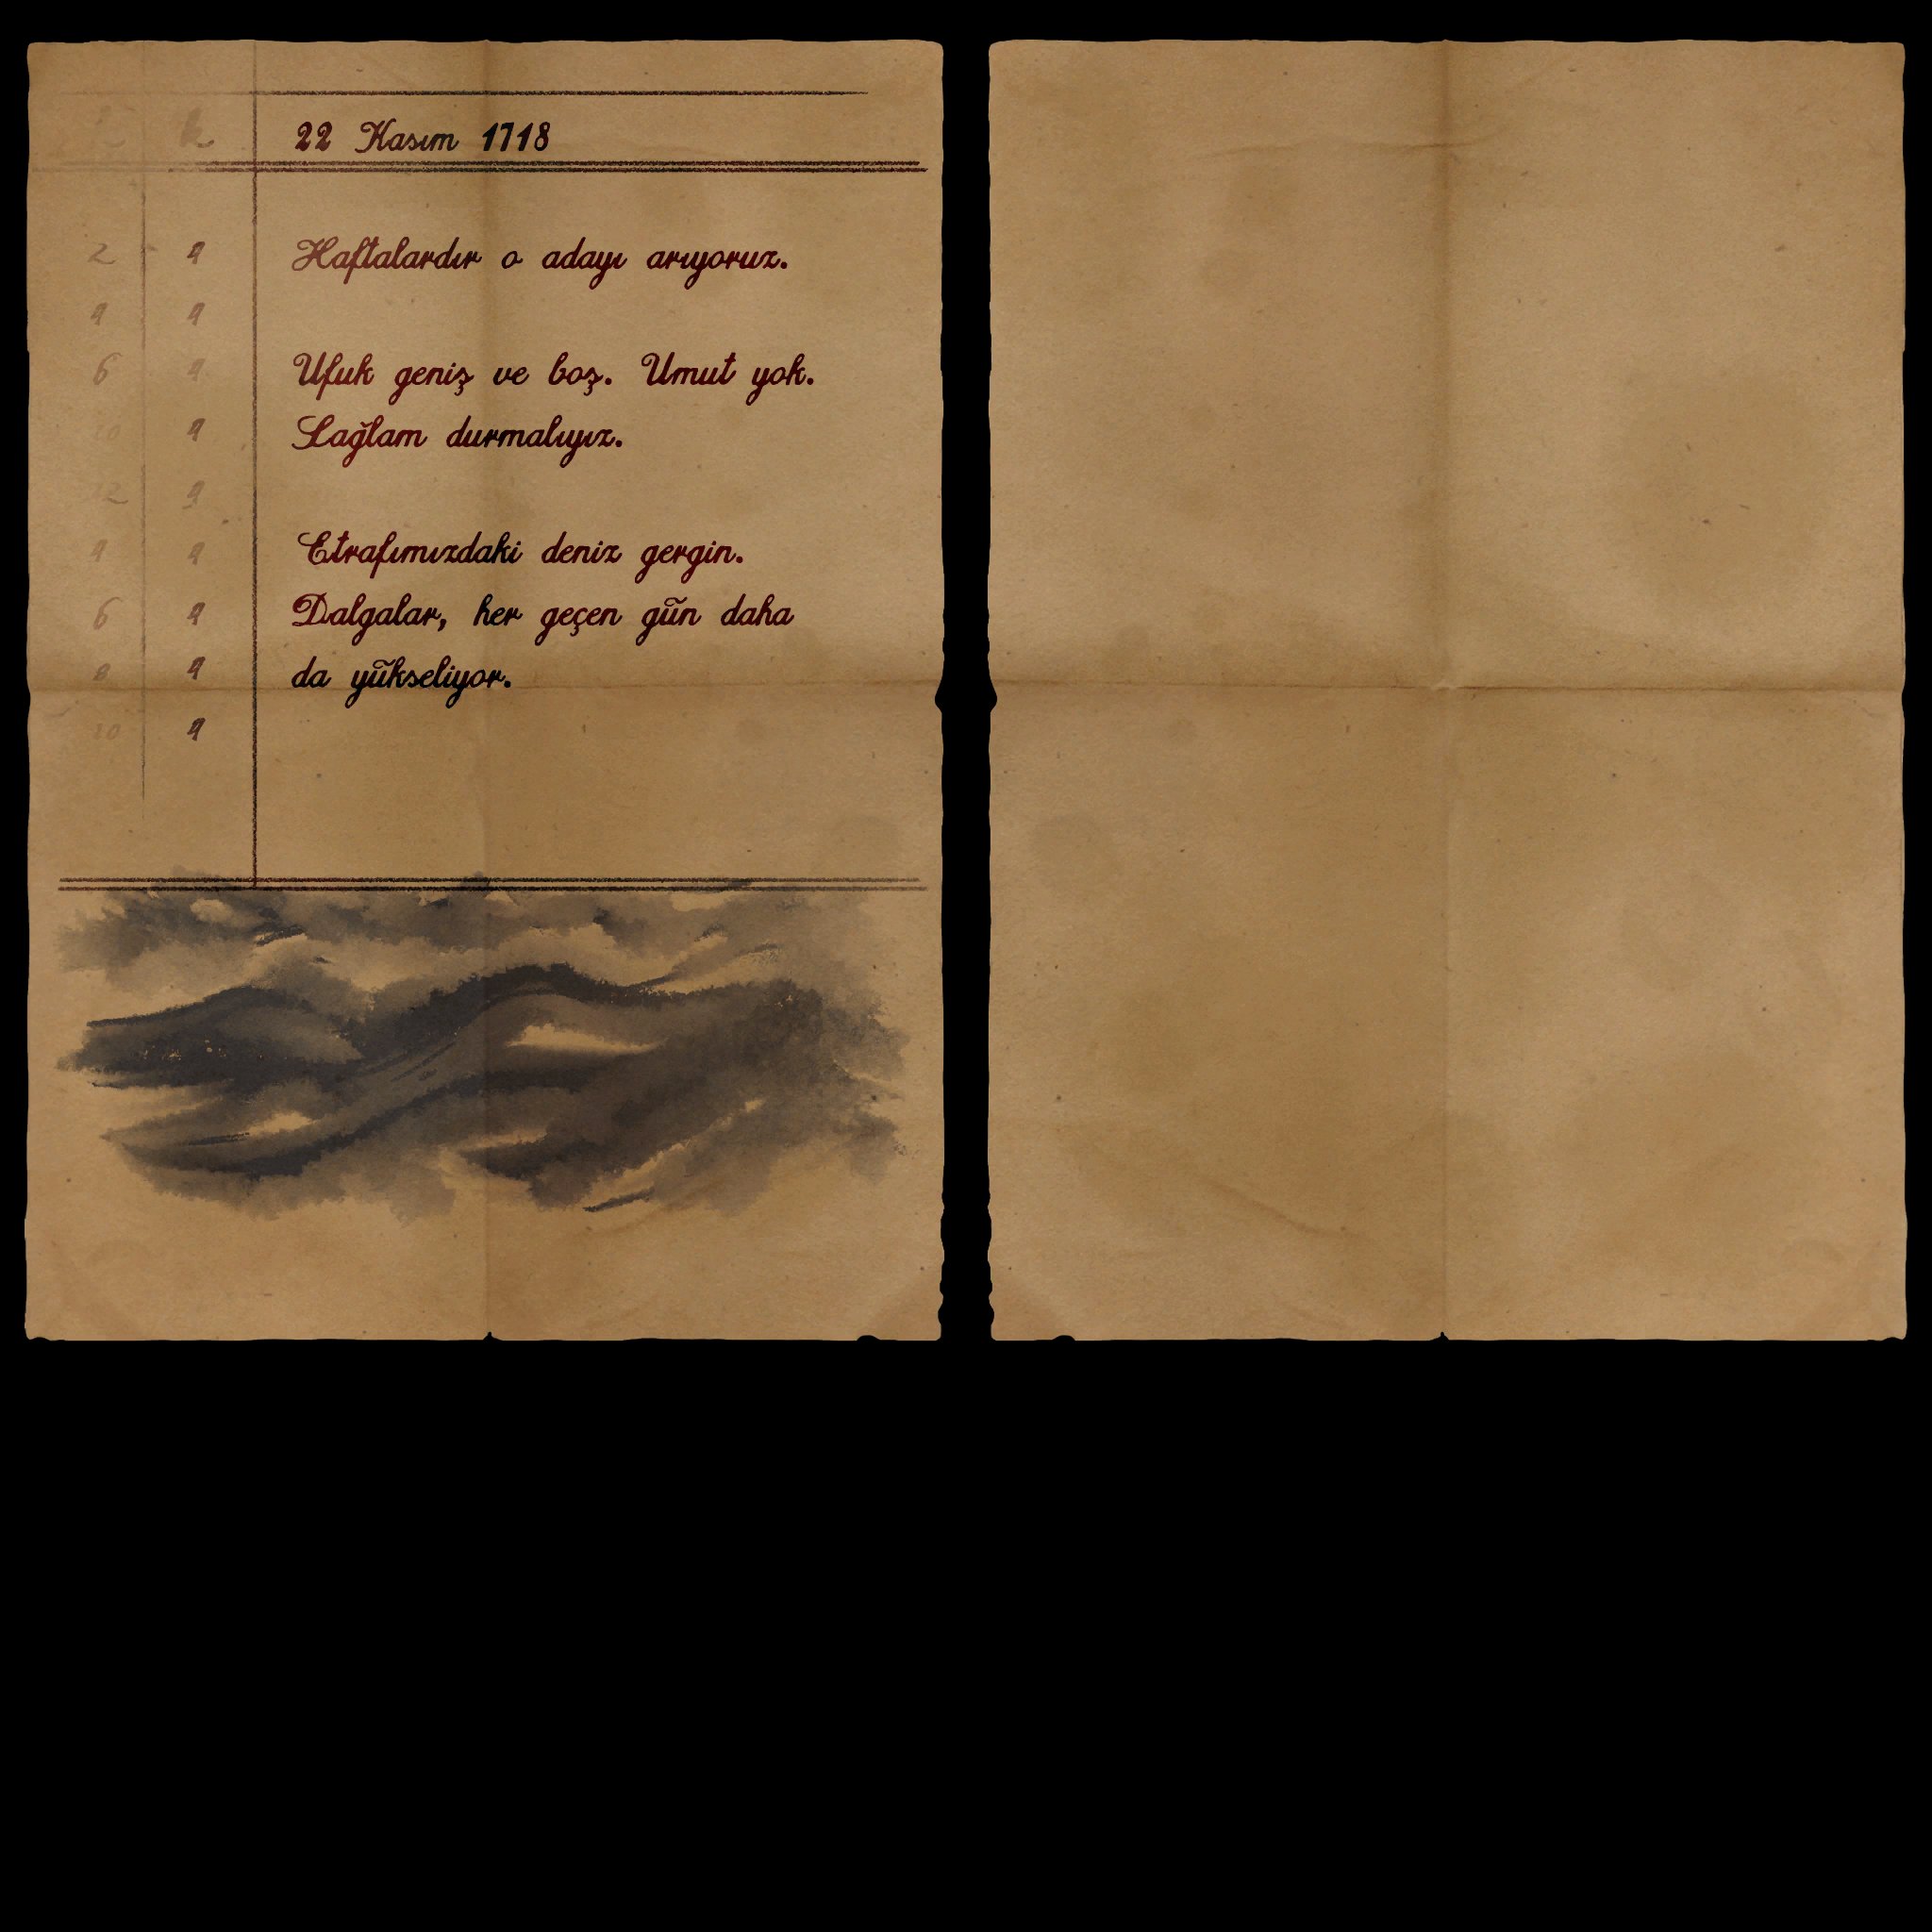 22 Kasım 1718
Haftalardır o adayı arıyoruz.
Ufuk geniş ve boş. Umut yok.
Sağlam durmalıyız.
Etrafımızdaki deniz gergin.
Dalgalar, her geçen gün daha
da yükseliyor.